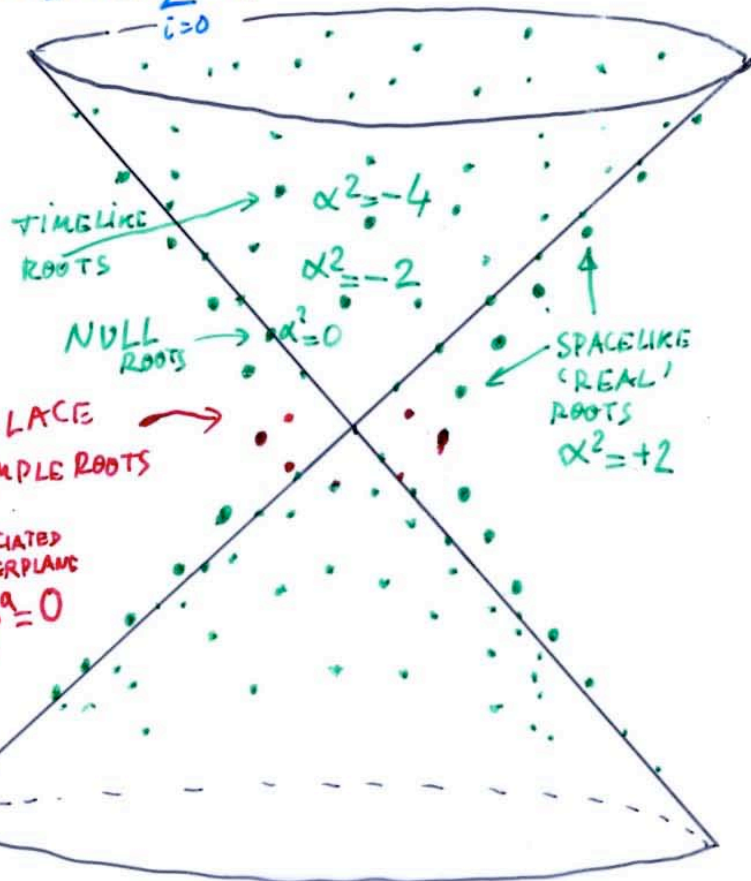 i=0
α²=-4
TIMELIKE
ROOTS
α²=-2
NULL
ROOTS
α²=0
SPACELIKE
'REAL'
ROOTS
α²=+2
LACE
MPLE ROOTS
CIATED
ERPLANE
=0